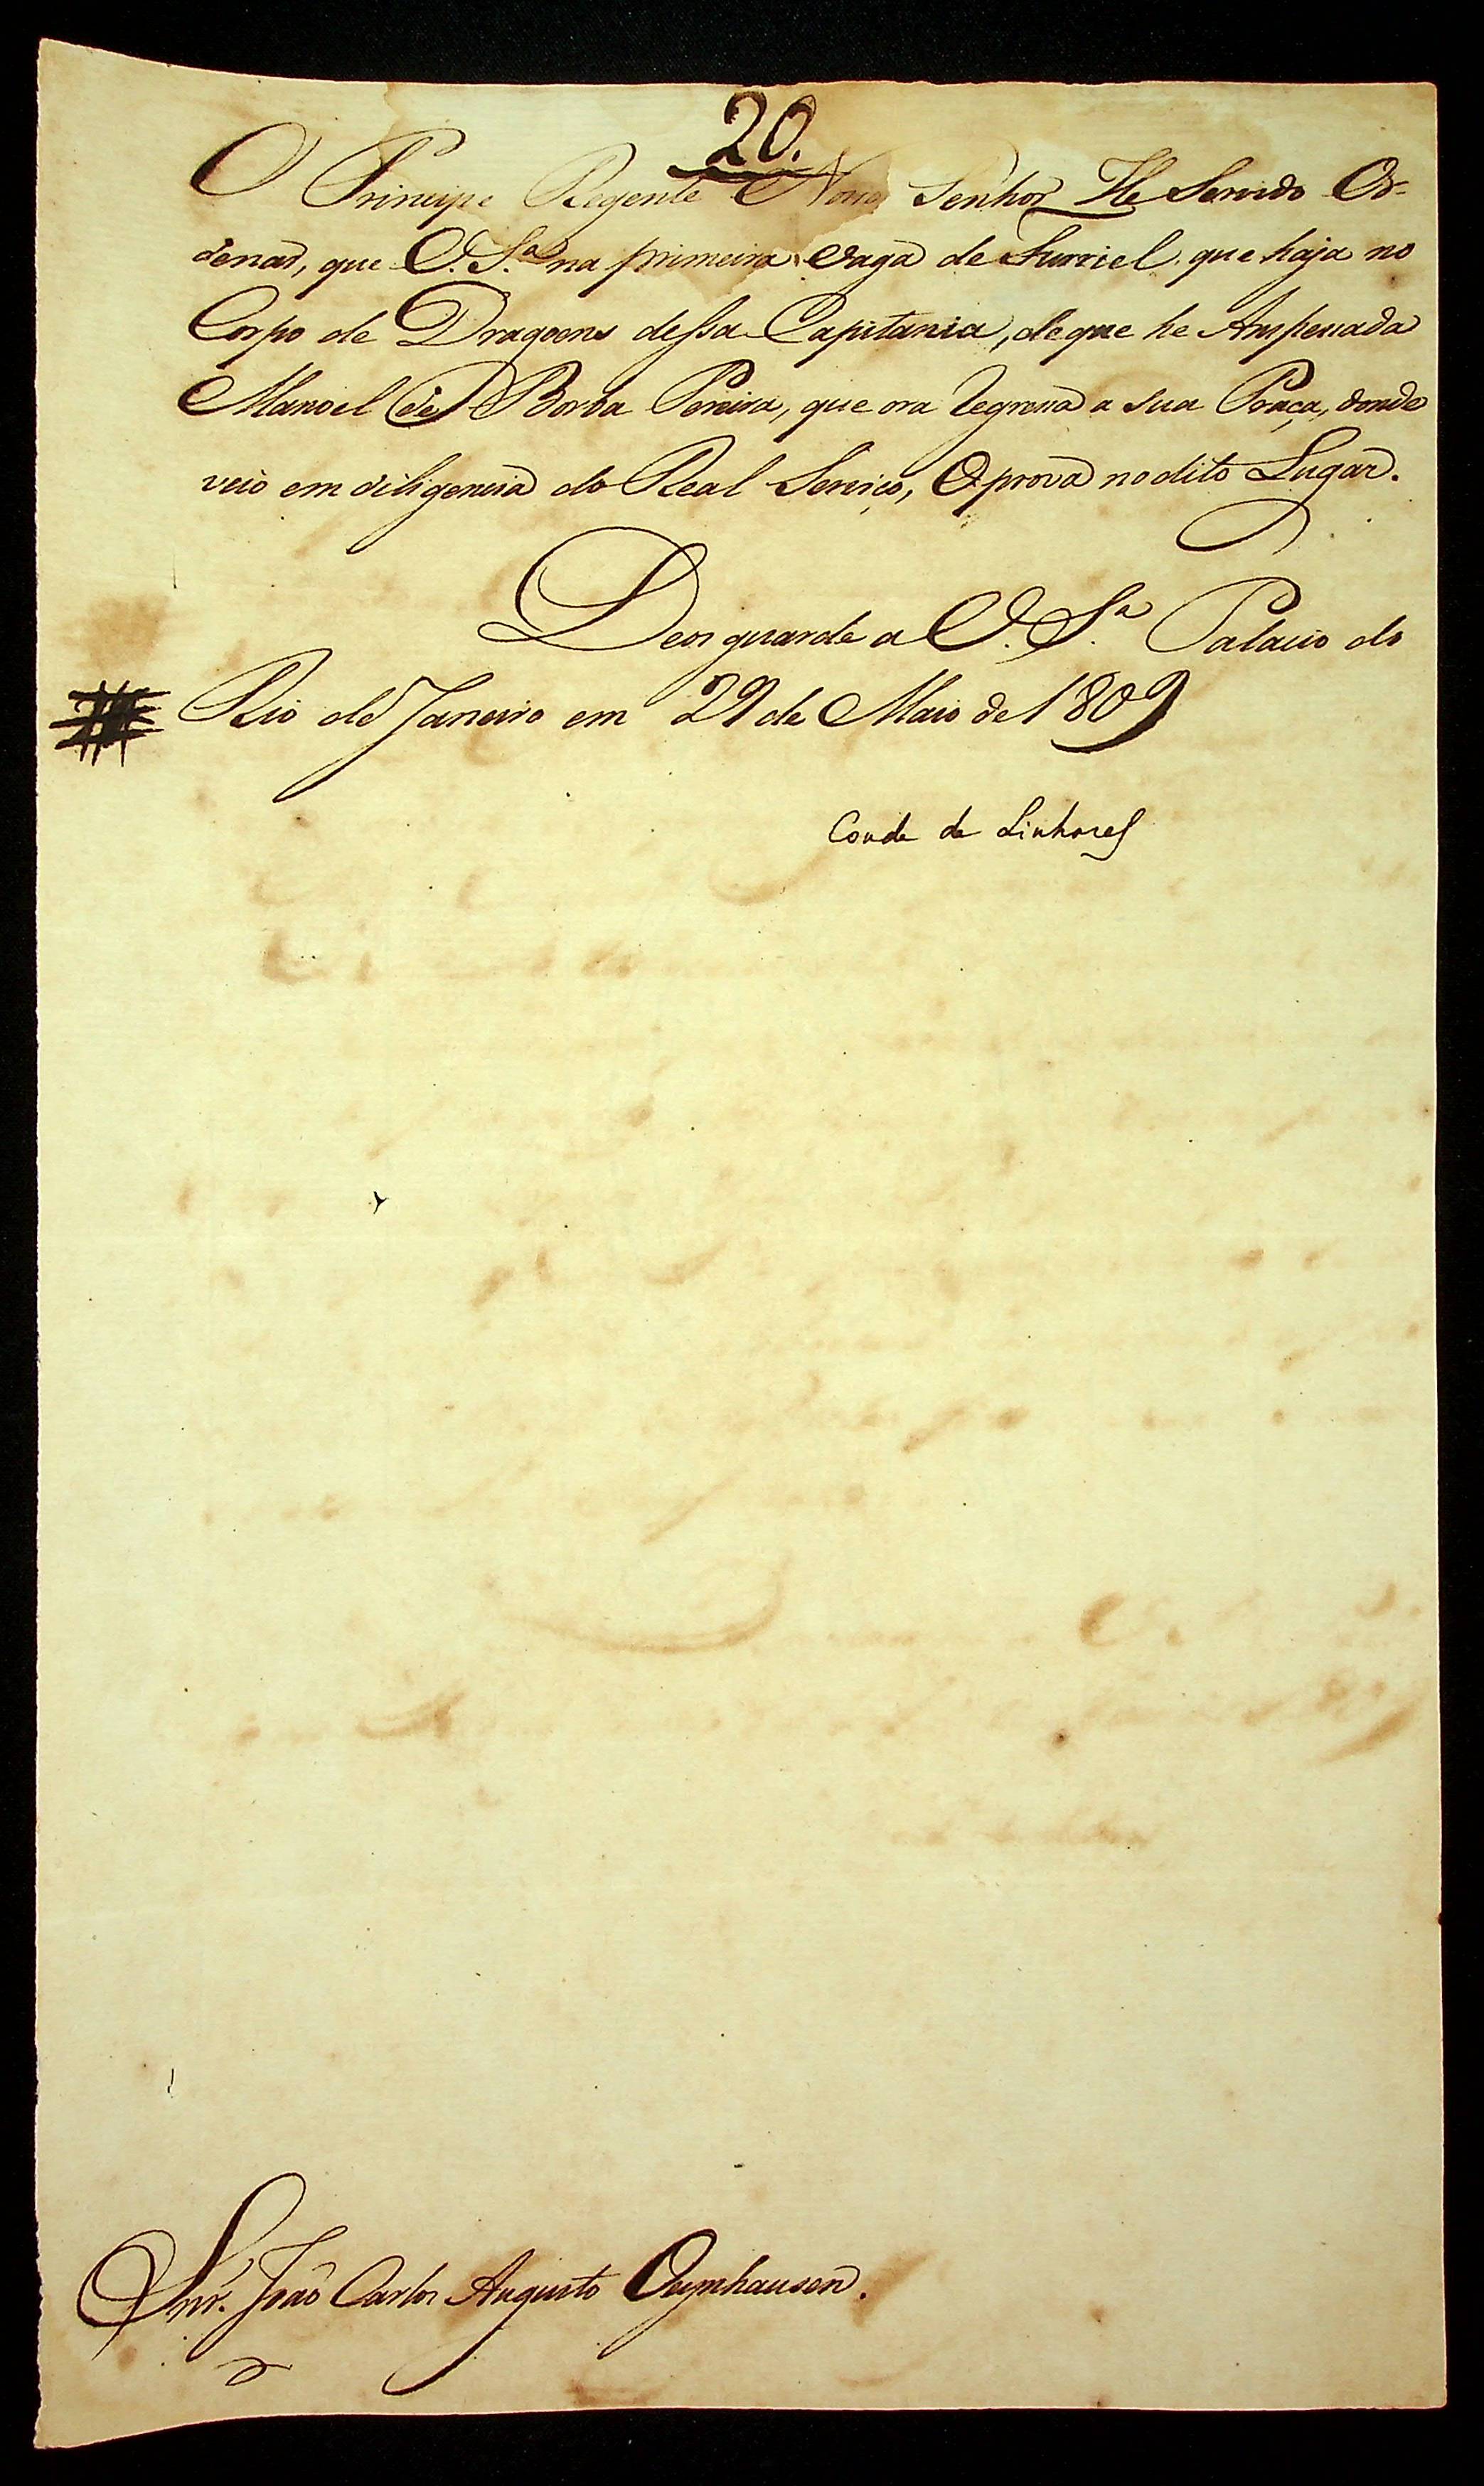 20.
O Principe Regente Nosso Senhor He Servido Or-
denar, que V. S.ª na primeira vaga de Furriel que haja no
Corpo de Dragoens dessa Capitania, de que he Anspessada
Manoel de Borba Pereira, que ora regressa a sua Praça, donde
veio em diligencia do Real Serviço, O prova no dito Lugar.
Deos guarde a V. S.ª Palacio do
Rio de Janeiro em 29 de Maio de 1809
Conde de Linhares
Snr. João Carlos Augusto Oeynhausen.